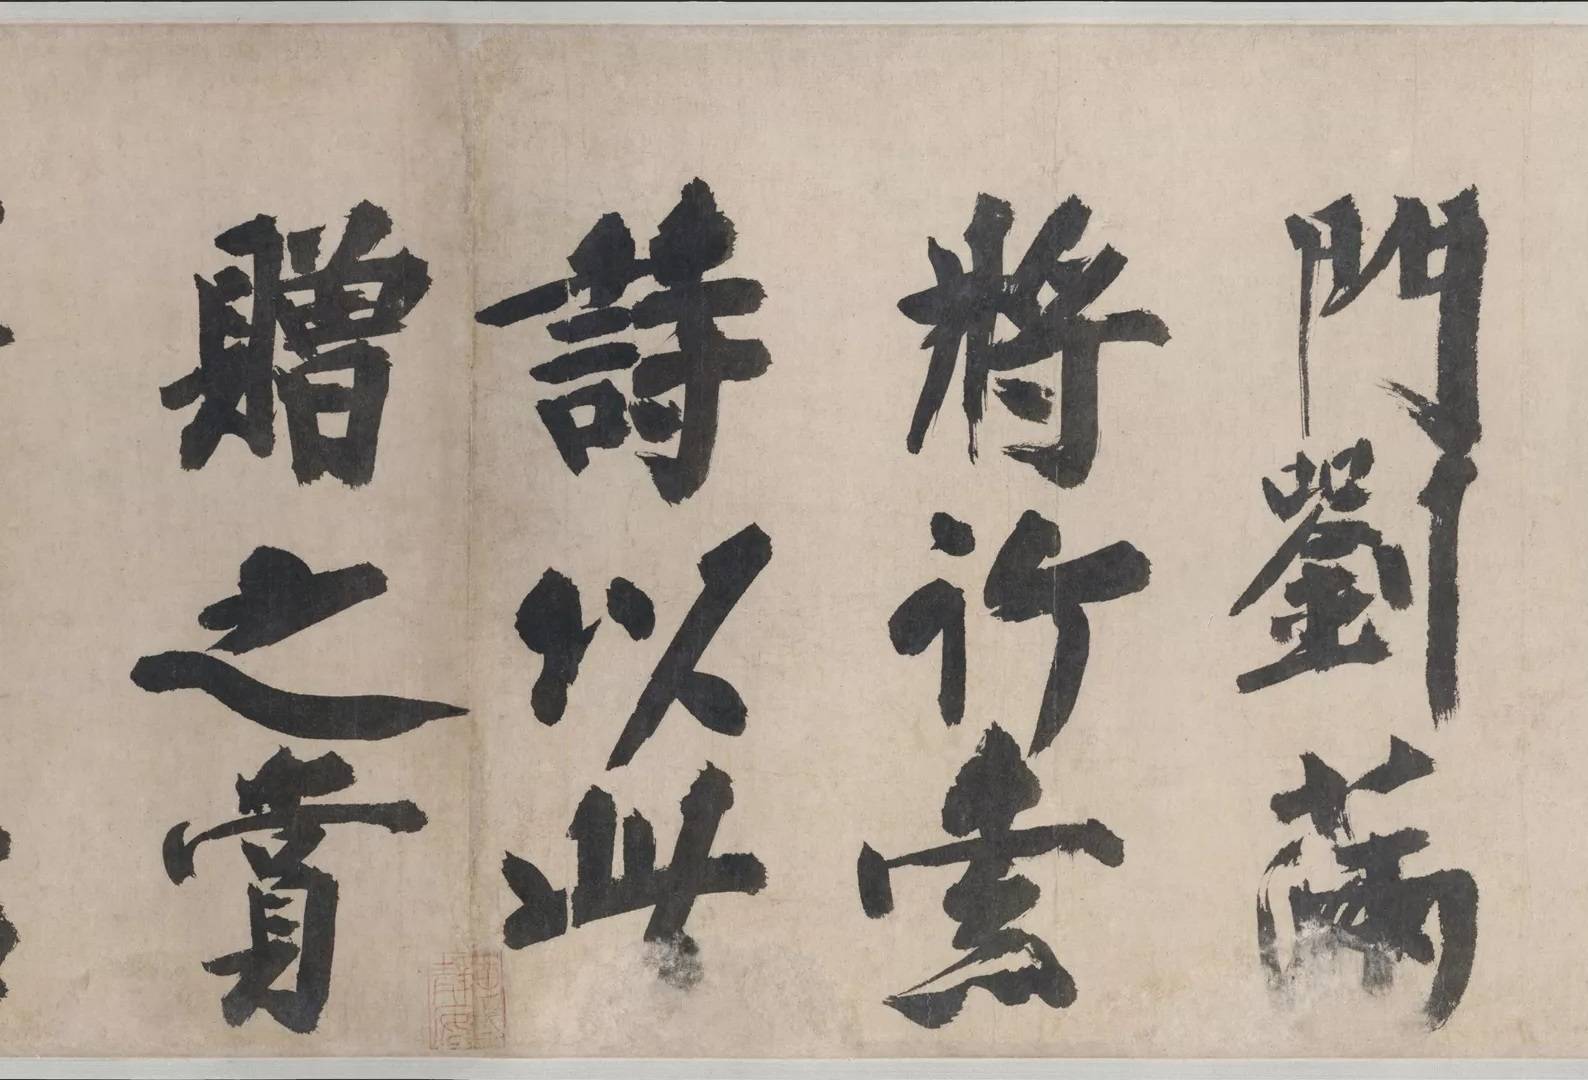 門劉滿
將行索
詩以此
贈之賞